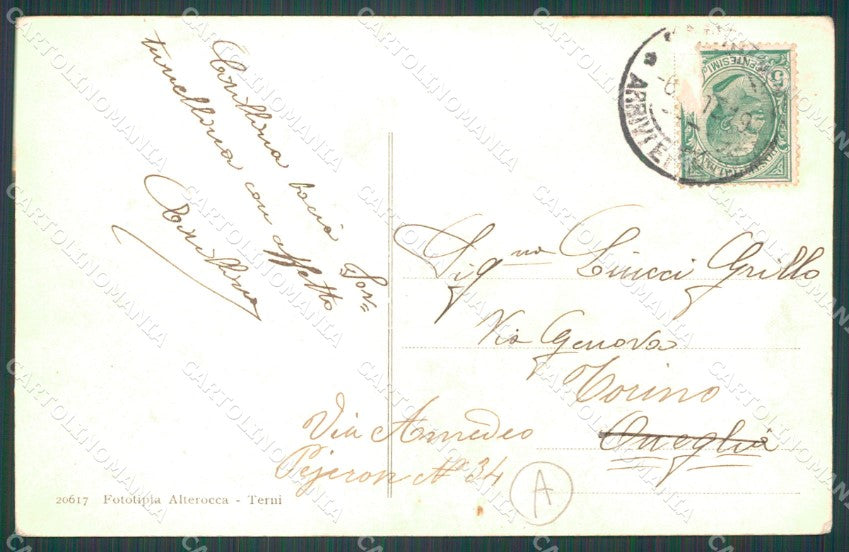 Camillina bacia For=
tunellina con affetto
Camillina
CENTESIMI 5
ARRIVI E
Sig.na Ciucci Grillo
Via Genova
Torino
Oneglia
Via Amedeo
Pejeron No 34
A
20617 Fototipia Alterocca - Terni
CARTOLINOMANIA